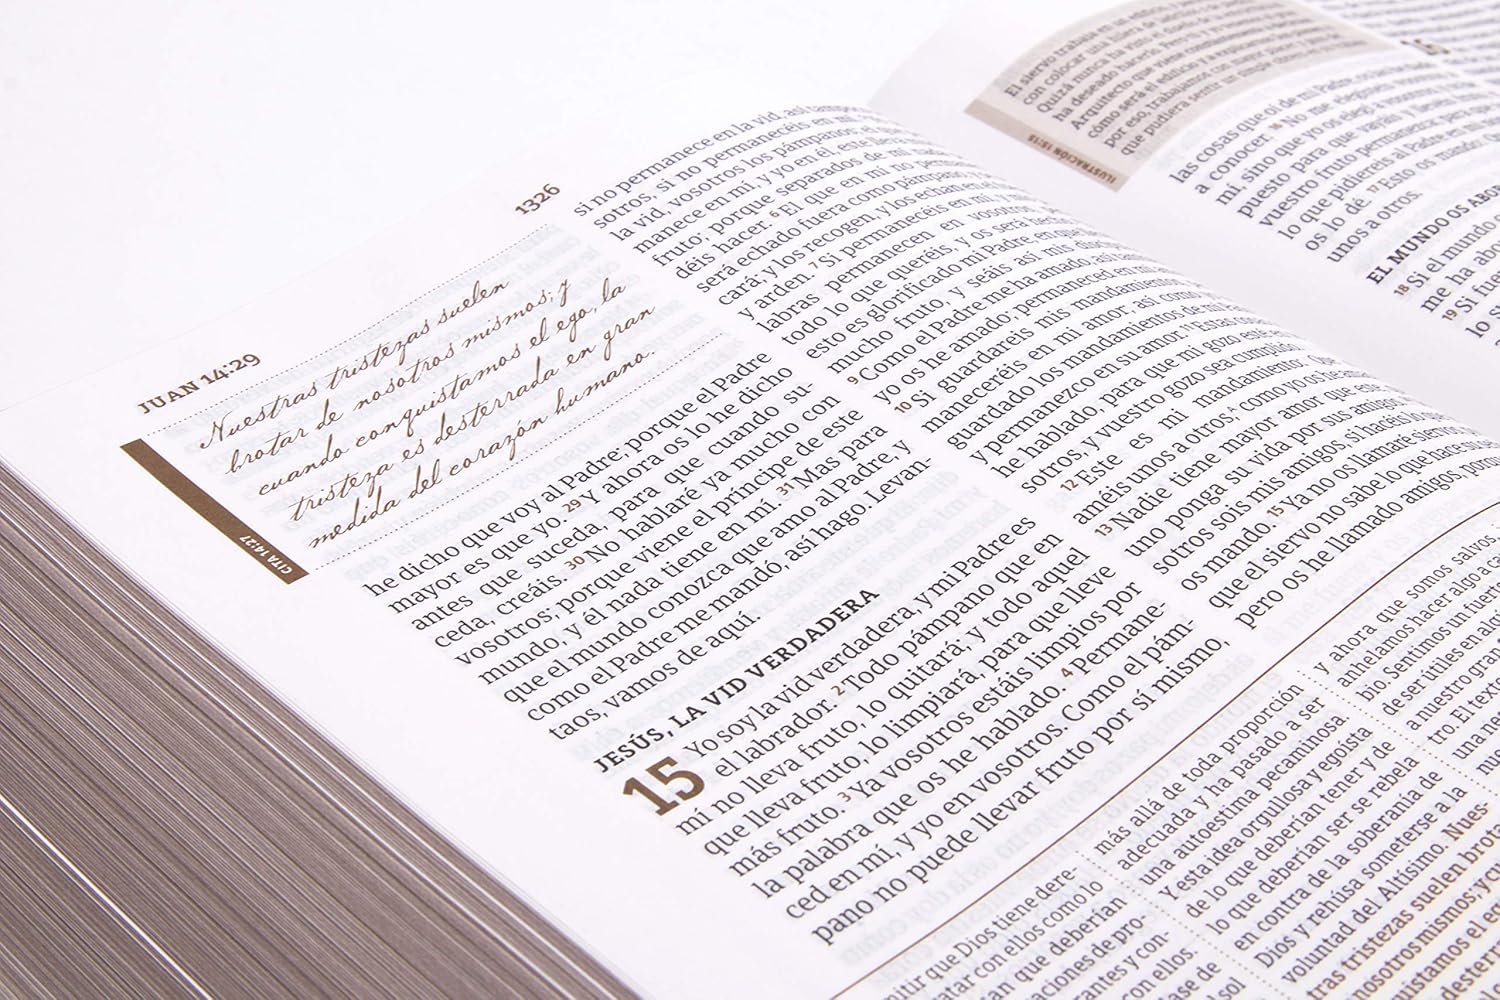 JUAN 14:29
1326
Nuestras tristezas suelen
brotar de nosotros mismos; y
cuando conquistamos el ego, la
tristeza es desterrada en gran
medida del corazón humano.
CITA 14:27
he dicho que voy al Padre; porque el Padre
mayor es que yo. 29 Y ahora os lo he dicho
antes que suceda, para que cuando su-
ceda, creáis. 30 No hablaré ya mucho con
vosotros; porque viene el príncipe de este
mundo, y él nada tiene en mí. 31 Mas para
que el mundo conozca que amo al Padre, y
como el Padre me mandó, así hago. Levan-
taos, vamos de aquí.
JESÚS, LA VID VERDADERA
15 Yo soy la vid verdadera, y mi Padre es
el labrador. 2 Todo pámpano que en
mí no lleva fruto, lo quitará; y todo aquel
que lleva fruto, lo limpiará, para que lleve
más fruto. 3 Ya vosotros estáis limpios por
la palabra que os he hablado. 4 Permane-
ced en mí, y yo en vosotros. Como el pám-
pano no puede llevar fruto por sí mismo,
si no permanece en la vid, así
sotros, si no permanecéis en mí.
la vid, vosotros los pámpanos; el que
manece en mí, y yo en él, este lleva
fruto; porque separados de mí
déis hacer. 6 El que en mí no
será echado fuera como pámpano, y
cará; y los recogen, y los echan en el
y arden. 7 Si permanecéis en mí, y
labras permanecen en vosotros,
todo lo que queréis, y os será
esto es glorificado mi Padre, en que
mucho fruto, y seáis así mis
9 Como el Padre me ha amado, así
yo os he amado; permaneced en mi
10 Si guardareis mis mandamientos
maneceréis en mi amor; así como
guardado los mandamientos de mi
y permanezco en su amor. 11 Estas
he hablado, para que mi gozo esté
sotros, y vuestro gozo sea cumplido.
12 Este es mi mandamiento: Que
améis unos a otros, A como yo os he
13 Nadie tiene mayor amor que
uno ponga su vida por sus amigos.
sotros sois mis amigos, si hacéis lo
os mando. 15 Ya no os llamaré siervos
que el siervo no sabe lo que hace su
pero os he llamado amigos,
que Dios tiene dere-
con ellos como lo
que deberían
de pro-
y con-
con ellos.
base de
más allá de toda proporción
adecuada y ha pasado a ser
una autoestima pecaminosa.
Y esta idea orgullosa y egoísta
de lo que deberían tener y de
lo que deberían ser se rebela
en contra de la soberanía de
Dios y rehúsa someterse a la
voluntad del Altísimo. Nues-
tras tristezas suelen
nosotros mismos; y
y ahora que somos salvos,
anhelamos hacer algo a
bio. Sentimos un
de ser útiles en
a nuestro gran
tro. El
una
El siervo trabaja en
con colocar una
Quizá nunca ha visto
ha deseado hacerlo.
Arquitecto que viene
cómo será el edificio y
por eso, trabajamos con
que pudiera sentir un simple
ILUSTRACIÓN 15:15
las cosas que oí de mi Padre, os las
a conocer. 16 No me elegisteis
mí, sino que yo os elegí a vosotros, y
puesto para que vayáis y llevéis
vuestro fruto permanezca; para
lo que pidiereis al Padre en mi
os lo dé. 17 Esto os mando:
unos a otros.
EL MUNDO OS
18 Si el mundo
me ha
19 Si
lo